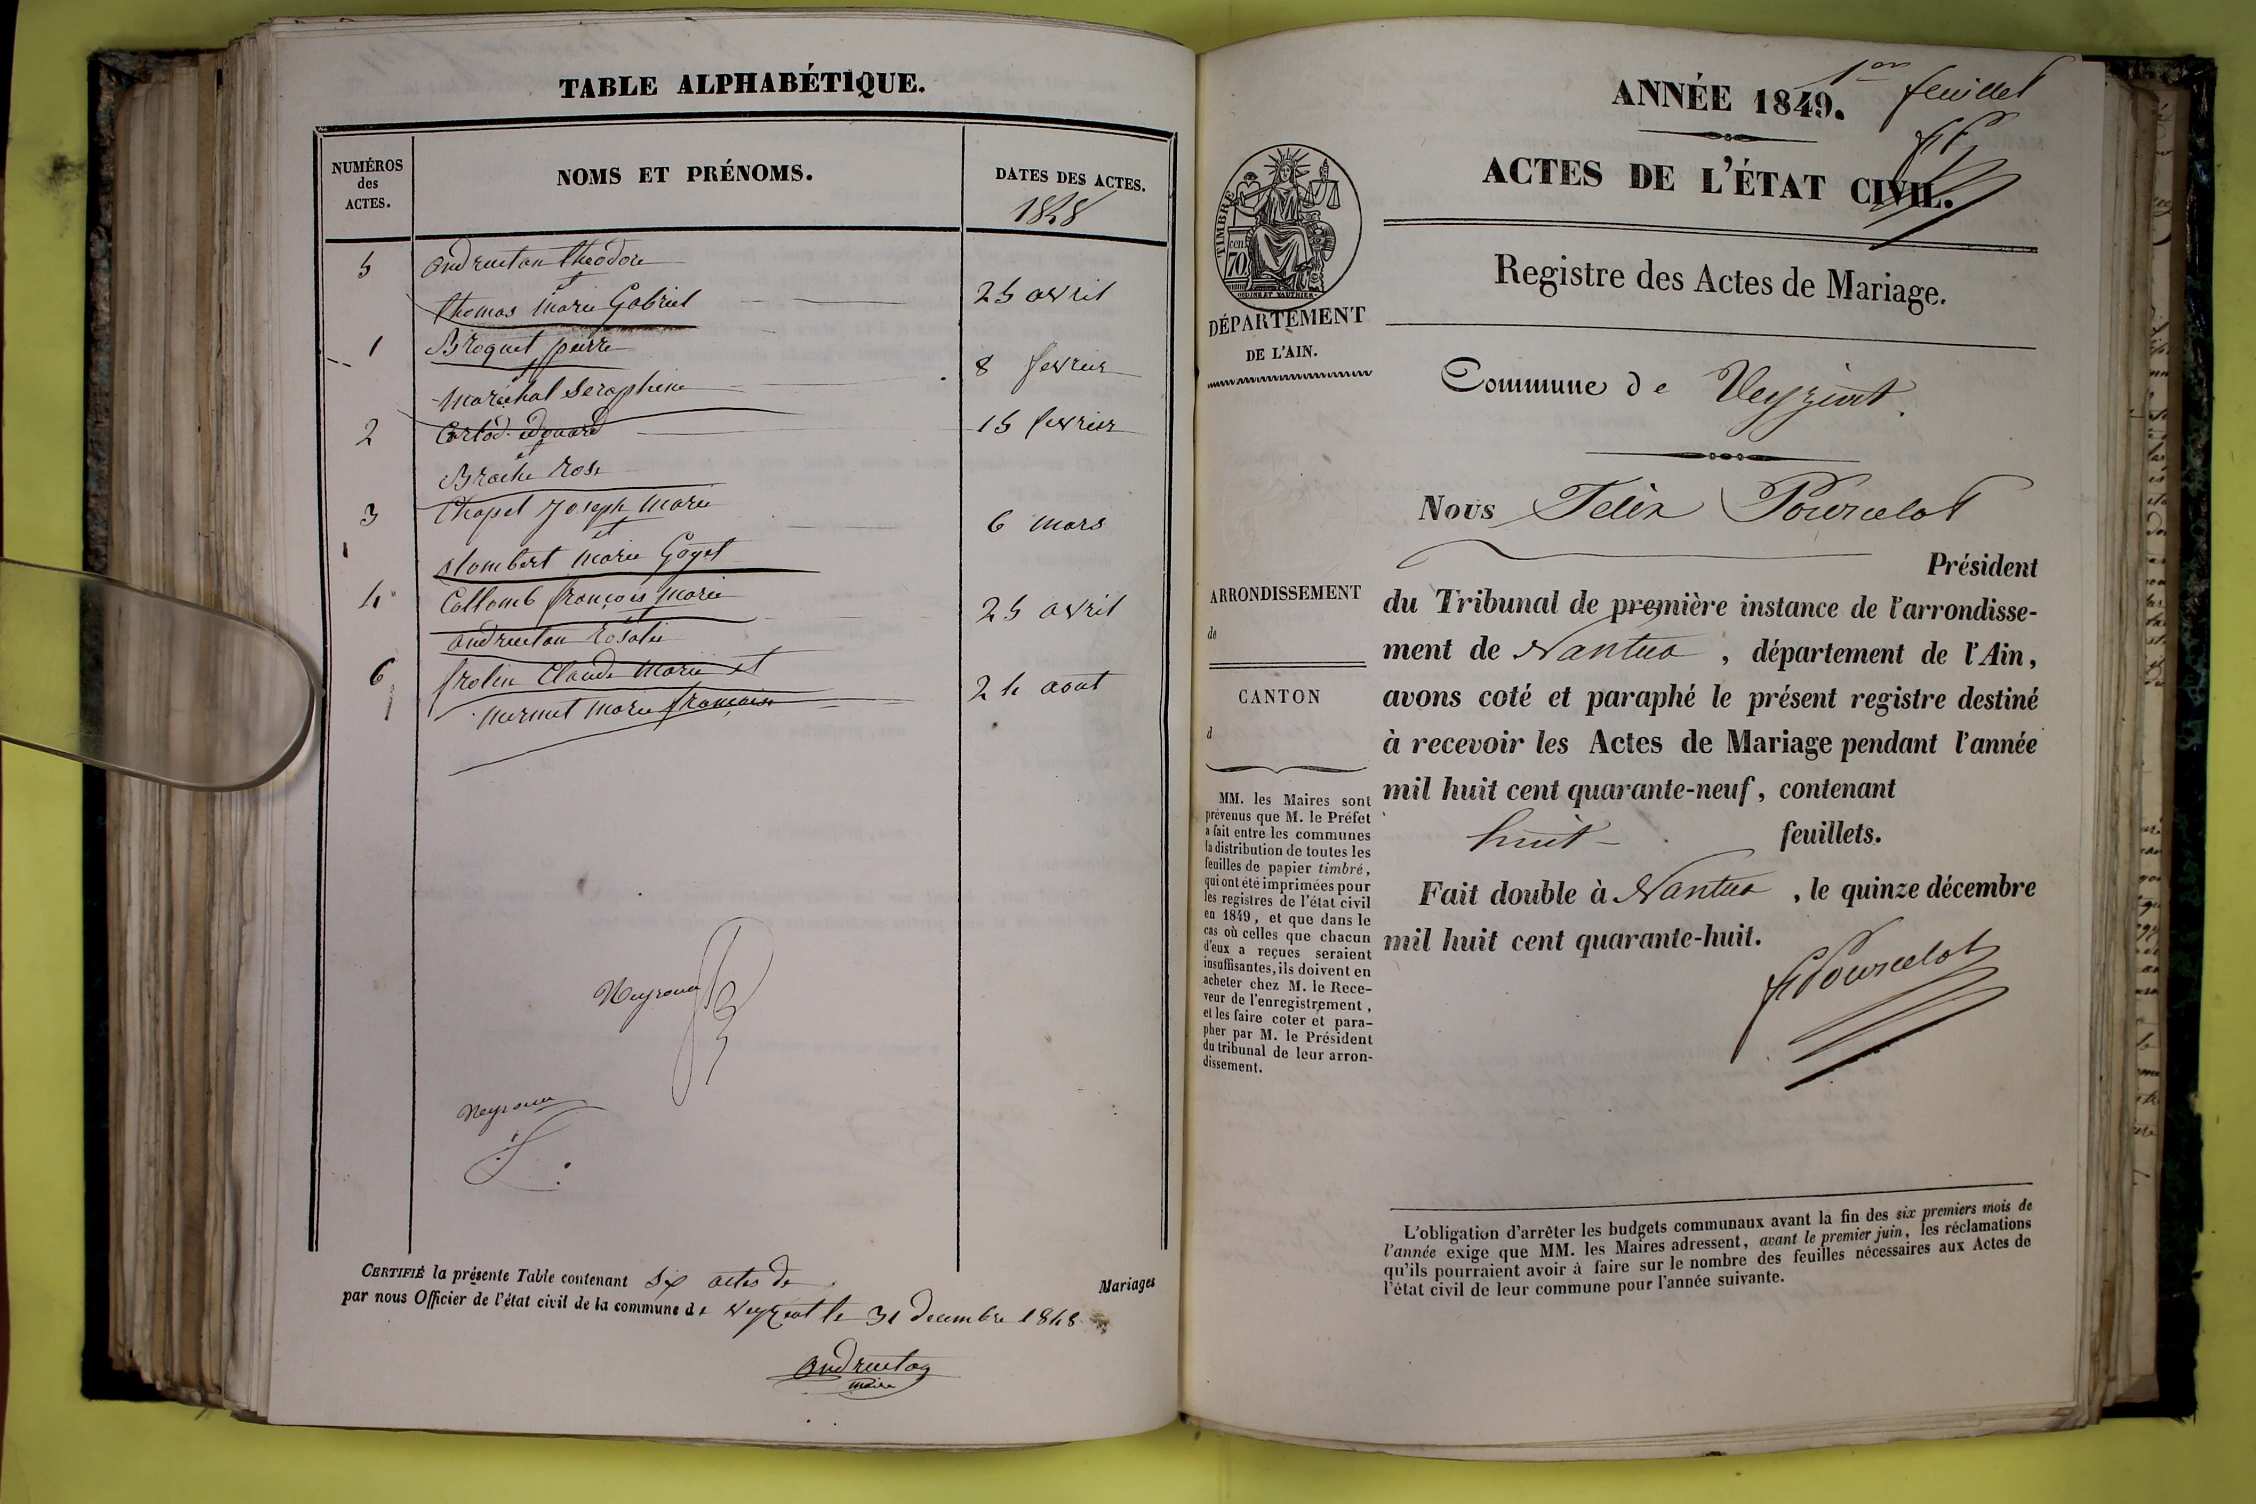 TABLE ALPHABÉTIQUE.
NUMÉROS
des
ACTES.
NOMS ET PRÉNOMS.
DATES DES ACTES.
1848
5 andruetan theodore
et
thomas marie Gabriel 25 avril
1 Broquet pierre
et
maréchal Seraphine 8 fevrier
2 Carlod edouard 15 fevrier
et
Broche Rose
3 Chapel Joseph Marie
et 6 mars
alombert marie Goyet
4 Collomb françois marie
et 25 avril
andruetan Rosalie
6 frolin Claude Marie et
mermet marie françoise 24 aout
Neyroux
Neyroux
CERTIFIÉ la présente Table contenant Six actes de Mariages
par nous Officier de l'état civil de la commune de Veyziat le 31 decembre 1848
andruetan
maire
1er feuillet
ANNÉE 1849.
ACTES DE L'ÉTAT CIVIL.
Registre des Actes de Mariage.
TIMBRE
70 cen
DÉPARTEMENT
DE L'AIN.
Commune de Veyziat
Nous Félix Pourcelot
Président
du Tribunal de première instance de l'arrondisse-
ment de Nantua, département de l'Ain,
avons coté et paraphé le présent registre destiné
à recevoir les Actes de Mariage pendant l'année
mil huit cent quarante-neuf, contenant
huit feuillets.
Fait double à Nantua, le quinze décembre
mil huit cent quarante-huit.
F Pourcelot
ARRONDISSEMENT
de
CANTON
d
MM. les Maires sont
prévenus que M. le Préfet
a fait entre les communes
la distribution de toutes les
feuilles de papier timbré,
qui ont été imprimées pour
les registres de l'état civil
en 1849, et que dans le
cas où celles que chacun
d'eux a reçues seraient
insuffisantes, ils doivent en
acheter chez M. le Rece-
veur de l'enregistrement,
et les faire coter et para-
pher par M. le Président
du tribunal de leur arron-
dissement.
L'obligation d'arrêter les budgets communaux avant la fin des six premiers mois de
l'année exige que MM. les Maires adressent, avant le premier juin, les réclamations
qu'ils pourraient avoir à faire sur le nombre des feuilles nécessaires aux Actes de
l'état civil de leur commune pour l'année suivante.